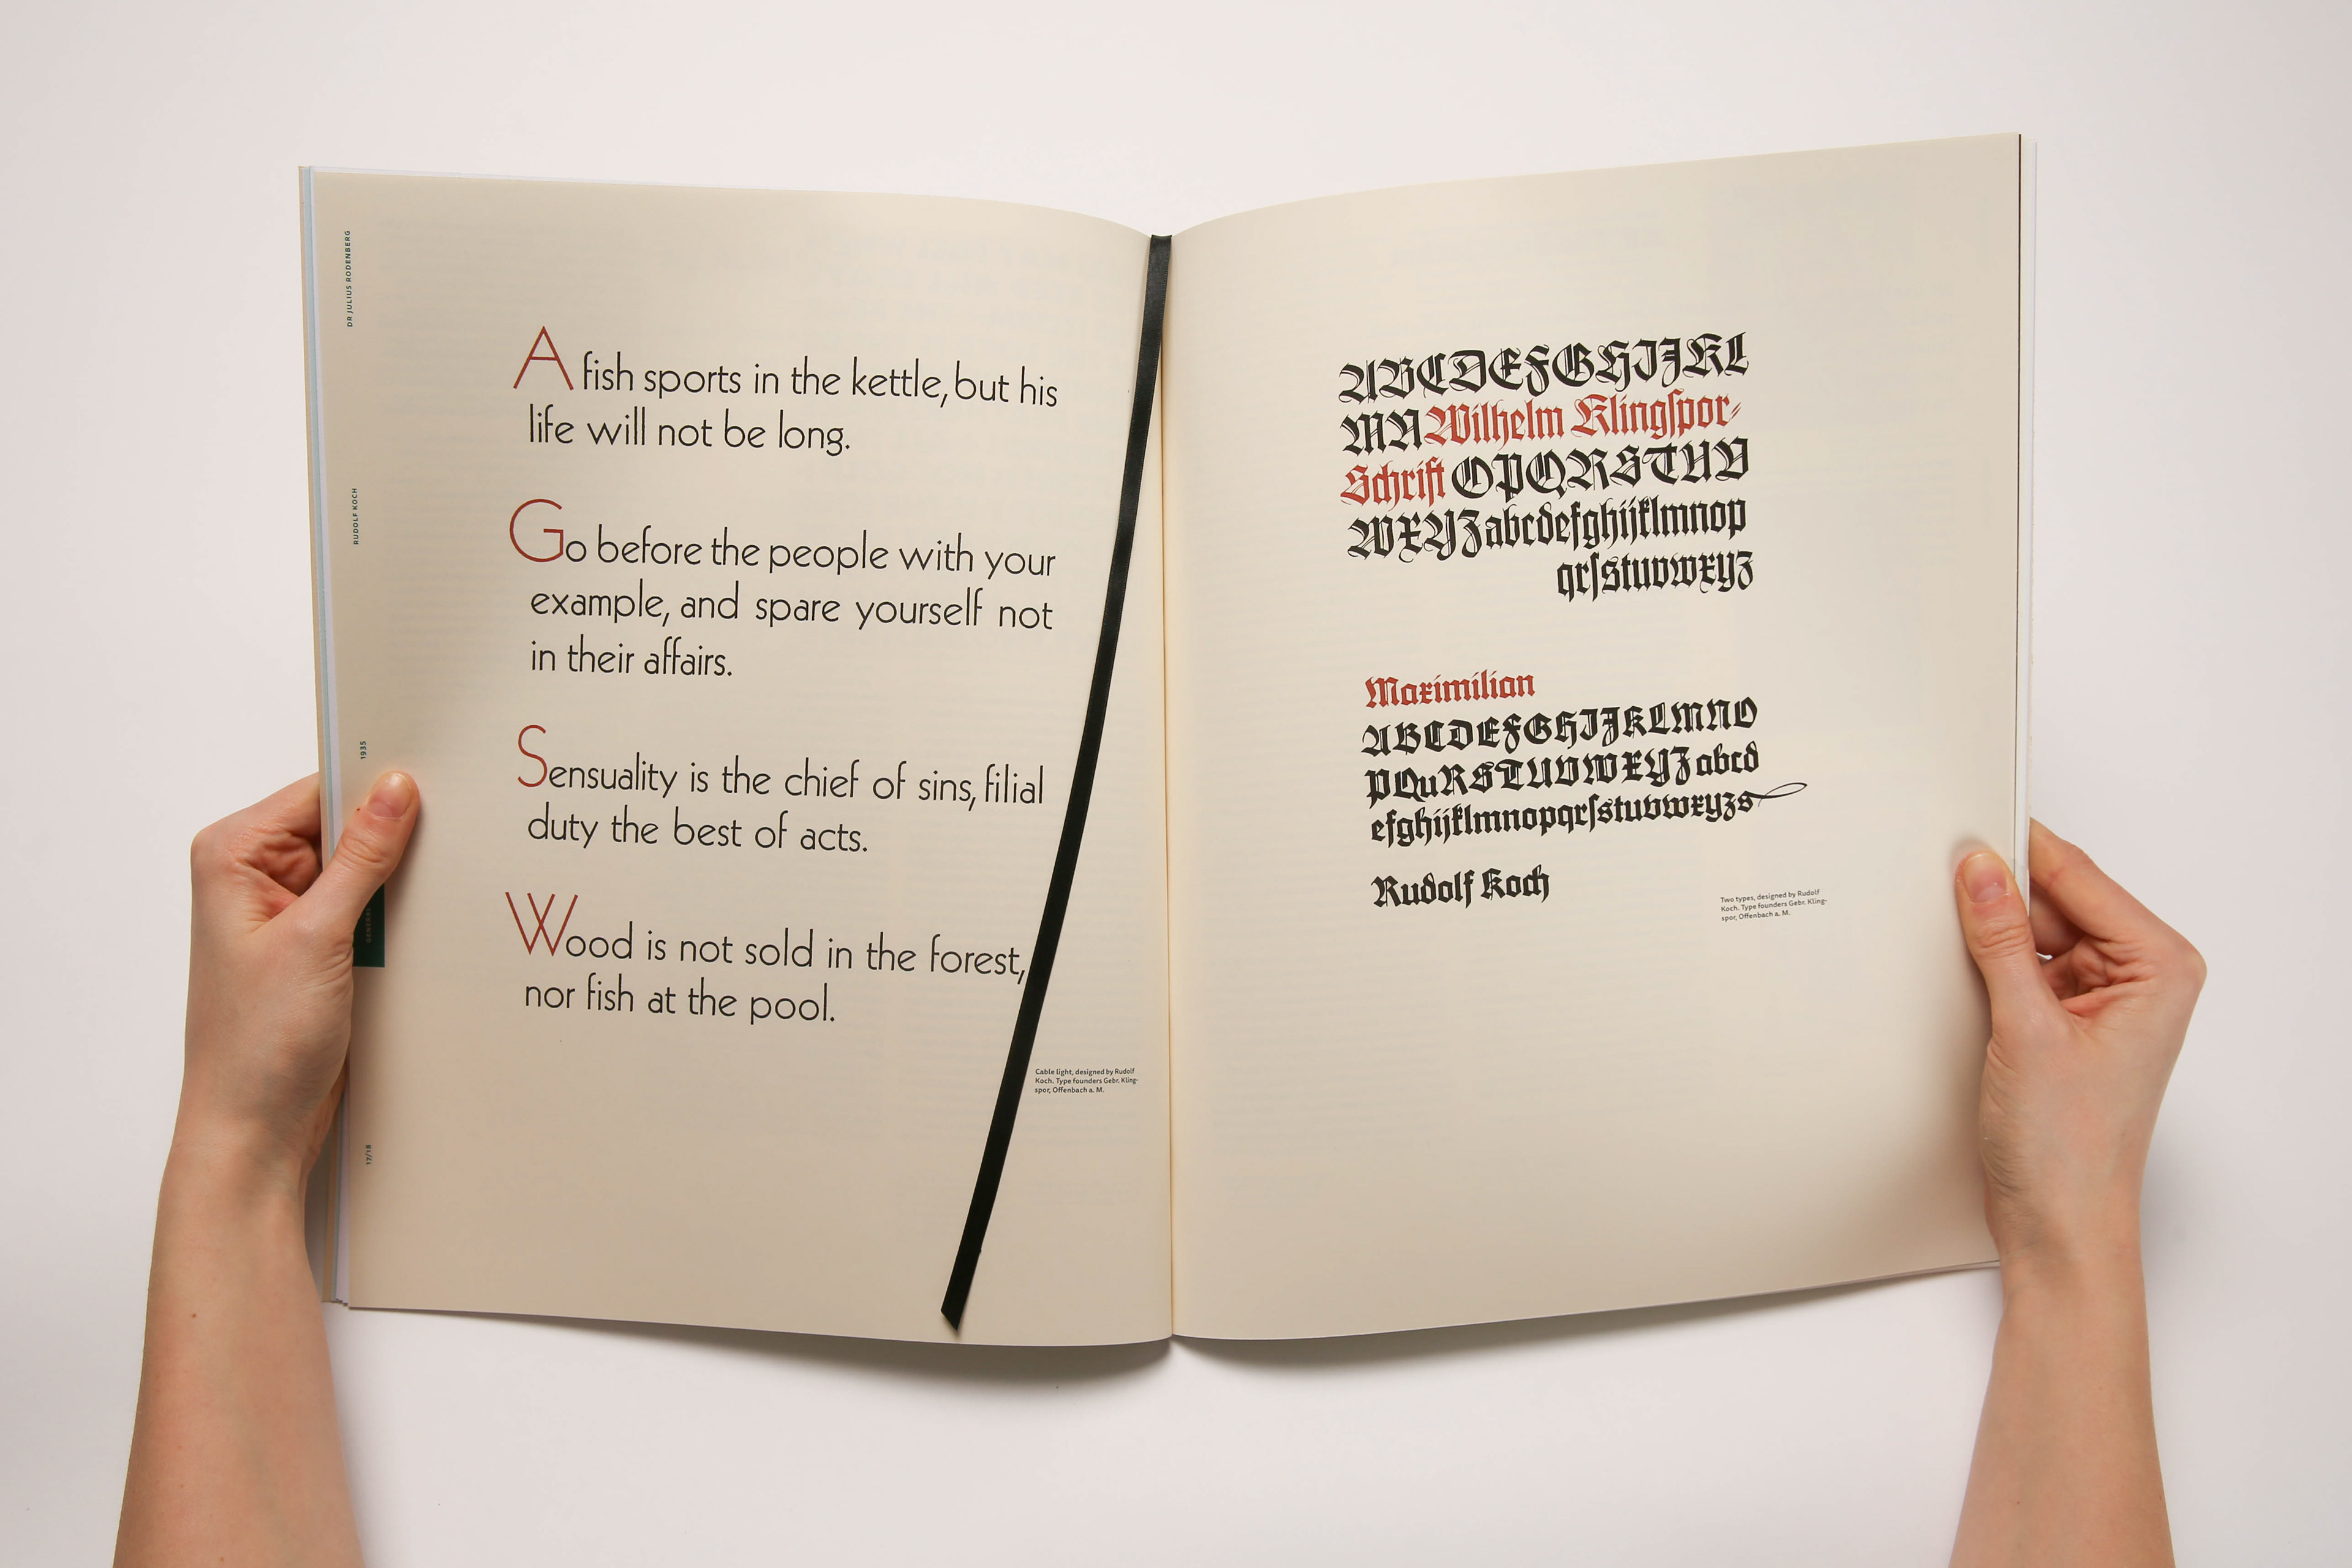 DR JULIUS RODENBERG
RUDOLF KOCH
1935
GENERAL
17/18
A fish sports in the kettle, but his
life will not be long.
Go before the people with your
example, and spare yourself not
in their affairs.
Sensuality is the chief of sins, filial
duty the best of acts.
Wood is not sold in the forest,
nor fish at the pool.
Cable light, designed by Rudolf
Koch. Type founders Gebr. Kling-
spor, Offenbach a. M.
ABCDEFGHIJKL
MN Wilhelm Klingſpor-
Schrift OPQRSTUV
WXYZ abcdefghijklmnop
qrſstuvwxyz
Maximilian
ABCDEFGHIJKLMNO
PQuRSTUVWXYZ abcd
efghijklmnopqrſstuvwxyzs
Rudolf Koch
Two types, designed by Rudolf
Koch. Type founders Gebr. Kling-
spor, Offenbach a. M.